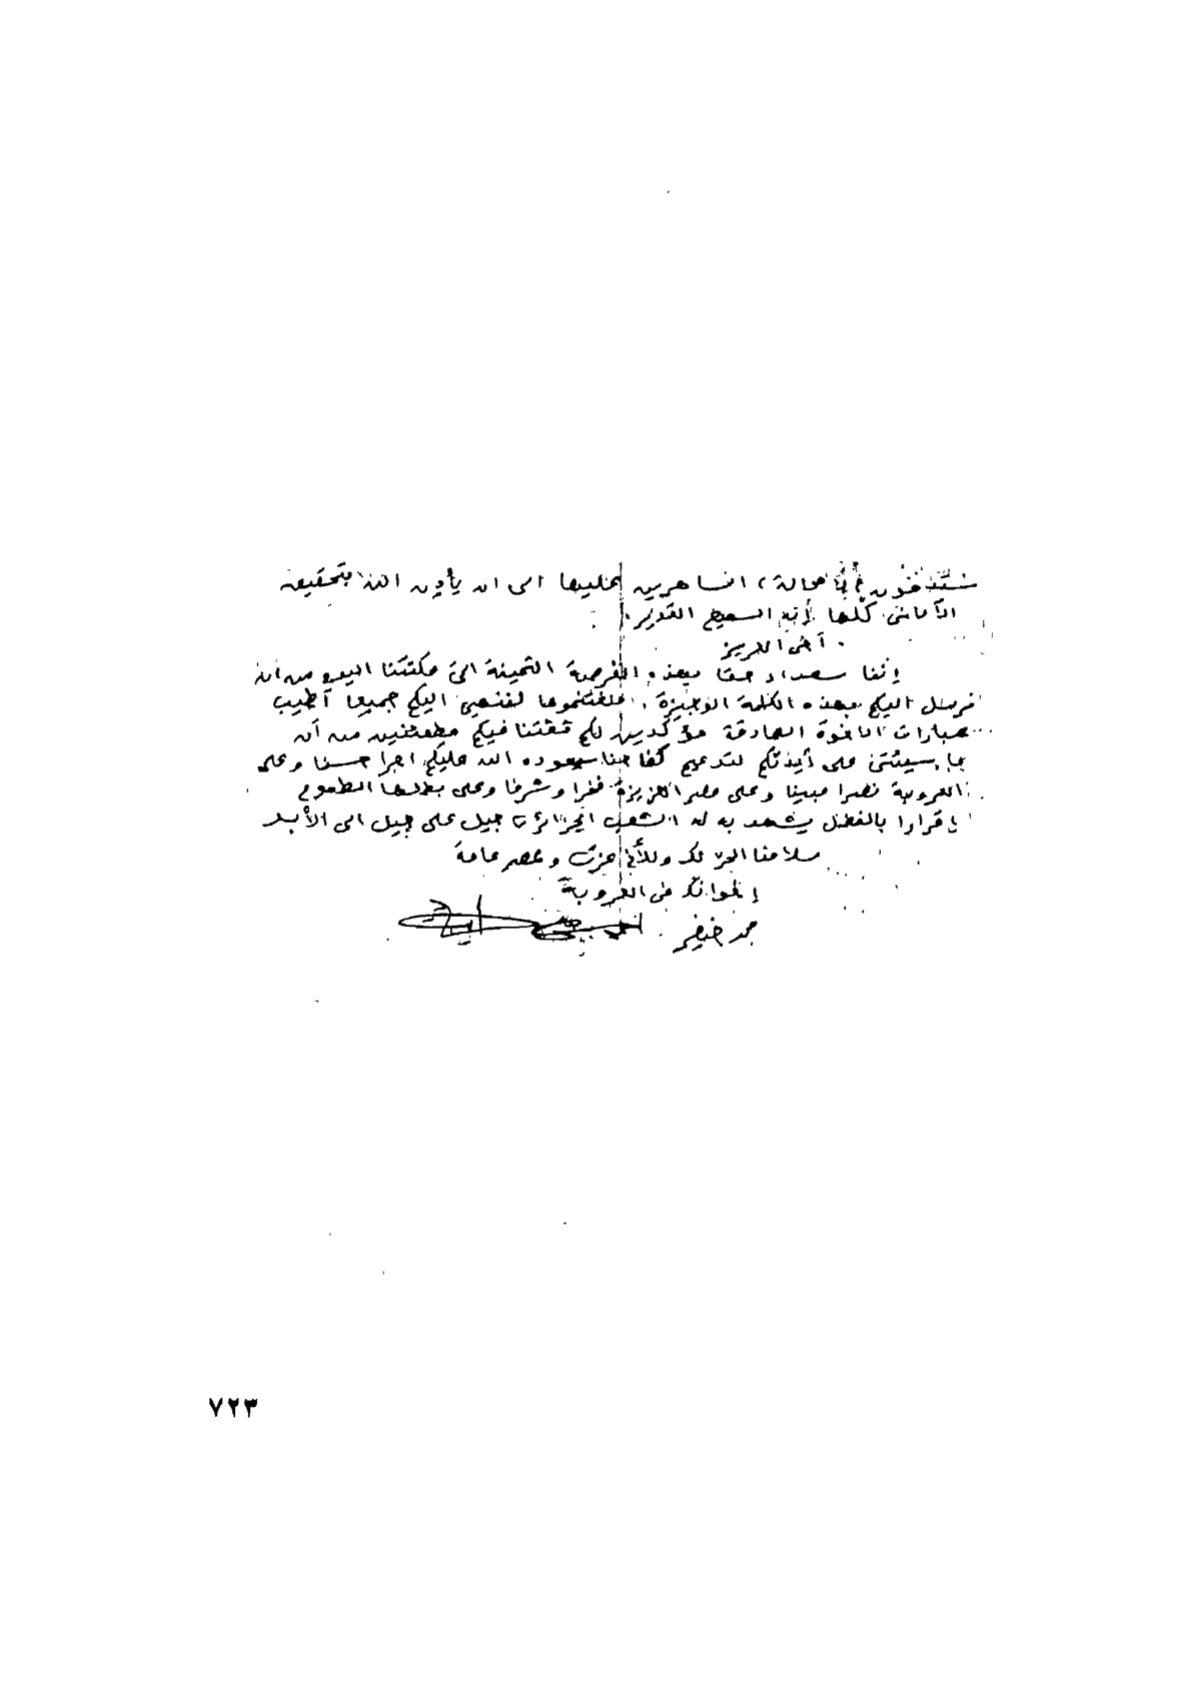 ستتخذون لا محالة، الساهرين عليها الى ان يأذن الله بتحقيق
الأمانى كلها إنه السميع القدير.
أخى العزيز
إننا سعداء حقا بهذه الفرصة الثمينة التى مكنتنا اليوم من ان
نرسل اليكم بهذه الكلمة الوجيزة، لننهى اليكم جميعا أطيب
عبارات الاخوة الصادقة مؤكدين لكم ثقتنا فيكم مطمئنين من أن
ما على أيديكم لتدعيم كفاحنا سيعوده الله عليكم اجرا حسنا وعلى
العروبة نصرا مبينا وعلى مصر العزيزة فخرا وشرفا وعلى بطلها الطموح
إقرارا بالفضل يشهد به له الشعب الجزائرى جيل على جيل الى الأبد
سلامنا الحر لك وللأخ عزت و عامة
إخوانك فى العروبة
محمد خيضر
٧٢٣